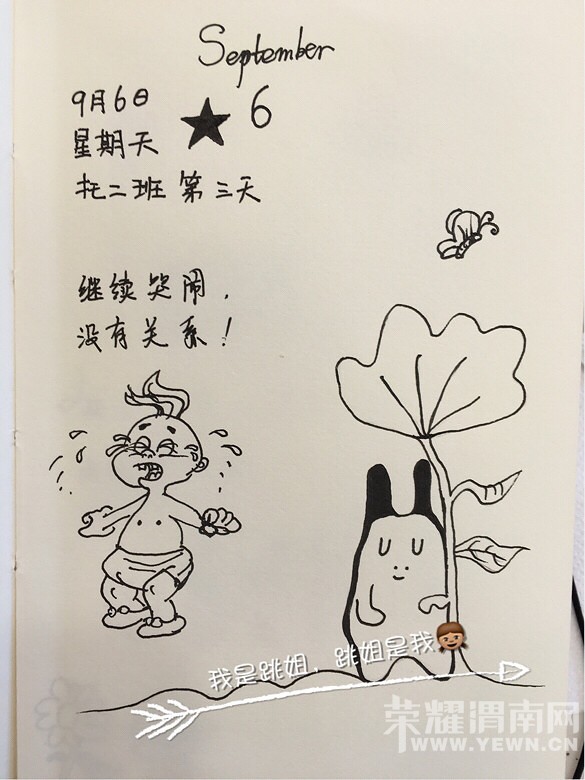 September
9月6日
★ 6
星期天
托二班 第三天
继续哭闹，
没有关系！
我是跳姐，跳姐是我
荣耀渭南网
WWW.YEWN.CN